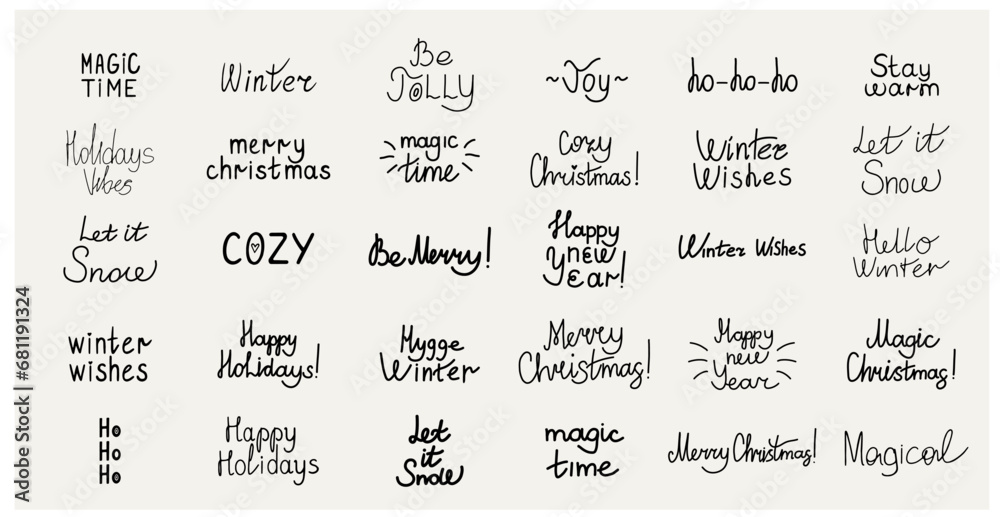 MAGIC
TIME
Winter
Be
JOLLY
~Joy~
ho-ho-ho
Stay
warm
Holidays
Vibes
merry
christmas
magic
time
Cozy
Christmas!
Winter
Wishes
Let it
Snow
Let it
Snow
COZY
Be Merry!
Happy
new
year!
Winter Wishes
Hello
Winter
winter
wishes
Happy
Holidays!
Hygge
Winter
Merry
Christmas!
Happy
new
year
Magic
Christmas!
Ho
Ho
Ho
Happy
Holidays
Let
it
Snow
magic
time
Merry Christmas!
Magical
Adobe Stock | #681191324